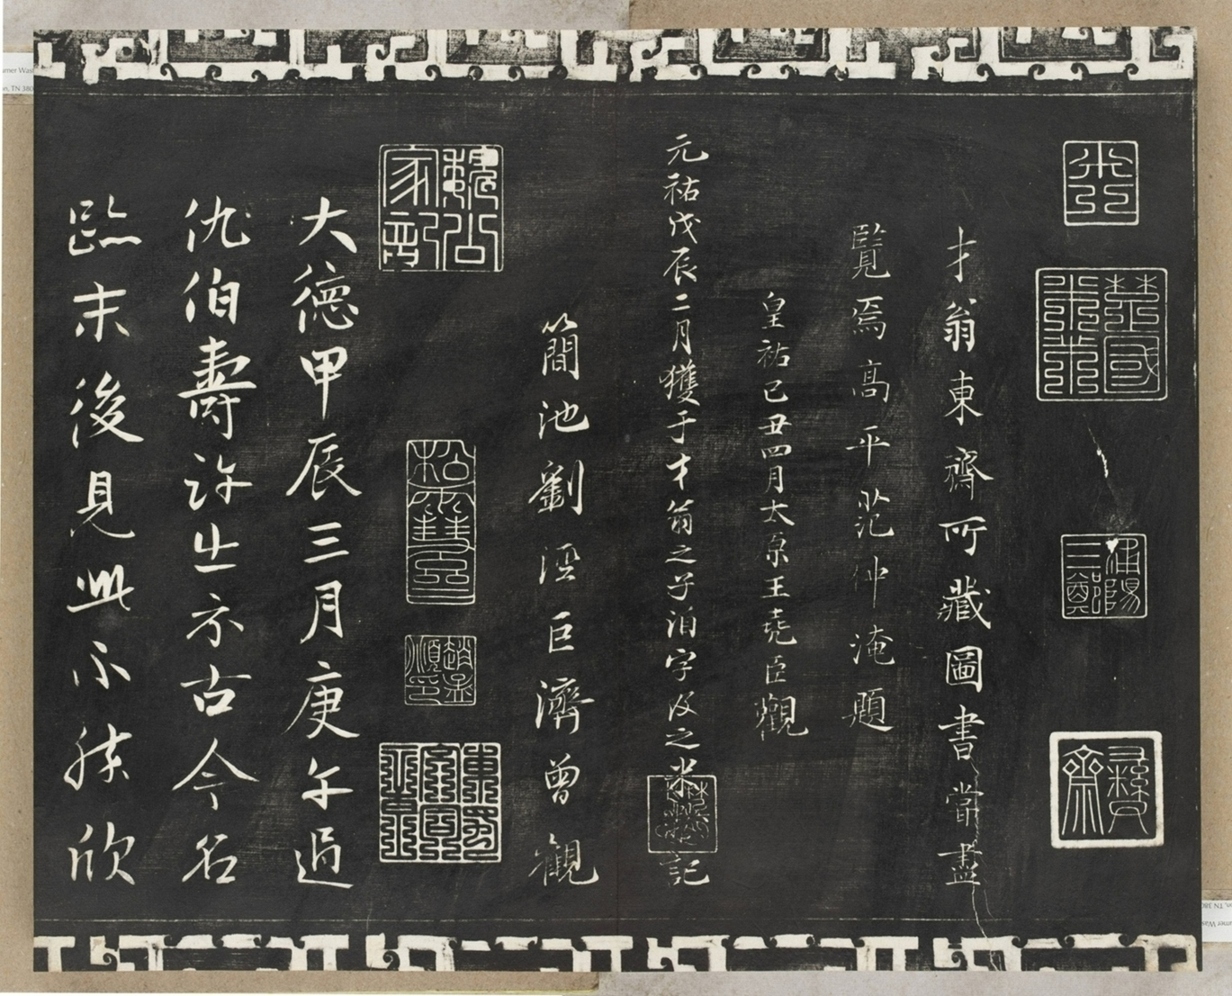 楚國米芾
彝齋
才翁東齋所藏圖書嘗盡
覽焉高平范仲淹題
皇祐己丑四月太原王堯臣觀
元祐戊辰二月獲于才翁之子洎字及之米黻記
簡池劉涇巨濟曾觀
趙孟頫印
大德甲辰三月庚午過
仇伯壽許出示古今名
跡末後見此不勝欣